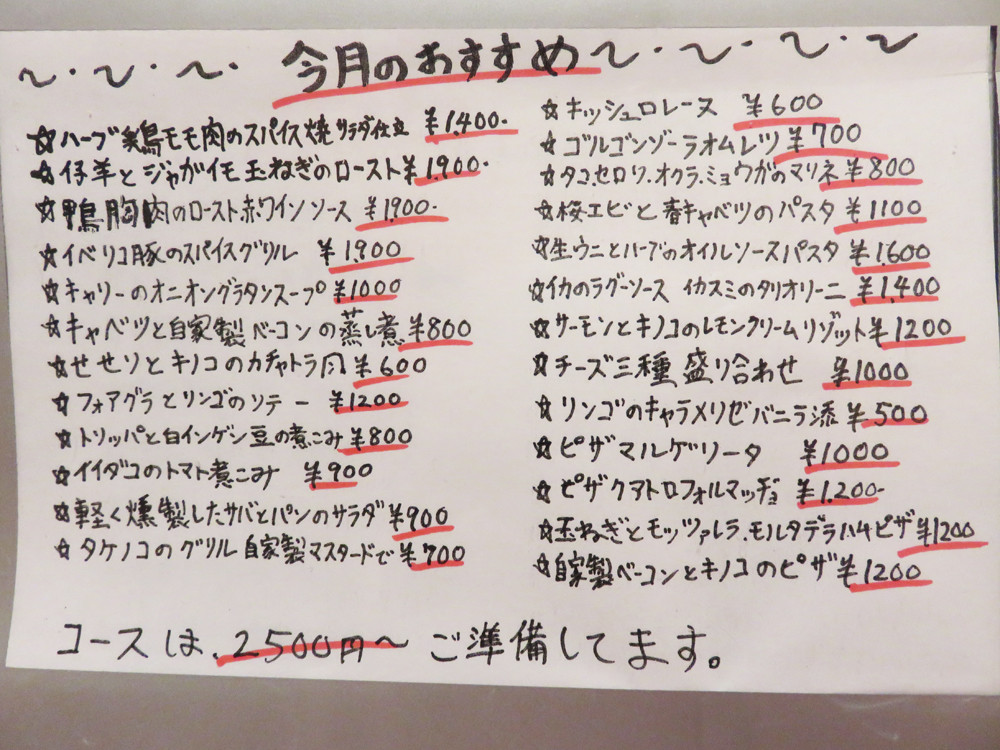 〜・〜・〜・今月のおすすめ〜・〜・〜・〜
☆ハーブ鶏モモ肉のスパイス焼サラダ仕立 ¥1,400-
☆仔羊とジャガイモ玉ねぎのロースト¥1,900-
☆鴨胸肉のロースト赤ワインソース ¥1,900-
☆イベリコ豚のスパイスグリル ¥1,900
☆キャリーのオニオングラタンスープ¥1000
☆キャベツと自家製ベーコンの蒸し煮¥800
☆せせりとキノコのカチャトラ風¥600
☆フォアグラとリンゴのソテー ¥1200
☆トリッパと白インゲン豆の煮こみ¥800
☆イイダコのトマト煮こみ ¥900
☆軽く燻製したサバとパンのサラダ¥900
☆タケノコのグリル自家製マスタードで¥700
☆キッシュロレーヌ ¥600
☆ゴルゴンゾーラオムレツ¥700
☆タコ.セロリ.オクラ.ミョウガのマリネ¥800
☆桜エビと春キャベツのパスタ¥1100
☆生ウニとハーブのオイルソースパスタ¥1,600
☆イカのラグーソース イカスミのタリオリーニ¥1,400
☆サーモンとキノコのレモンクリームリゾット¥1200
☆チーズ三種盛り合わせ ¥1000
☆リンゴのキャラメリゼバニラ添¥500
☆ピザマルゲリータ ¥1000
☆ピザクアトロフォルマッジョ ¥1,200-
☆玉ねぎとモッツァレラ.モルタデラハムピザ¥1200
☆自家製ベーコンとキノコのピザ¥1200
コースは、2500円〜ご準備してます。